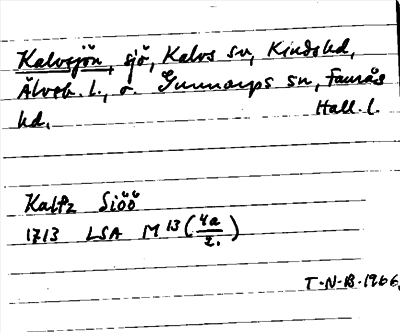 Kalvsjön, sjö, Kalvs sn, Kinds hd,
Älvsb. l., o. Gunnarps sn, Faurås
hd, Hall. l.
Kalfz Siöö
1713 LSA M 13 (4a/2.)
T-N-B-1966.